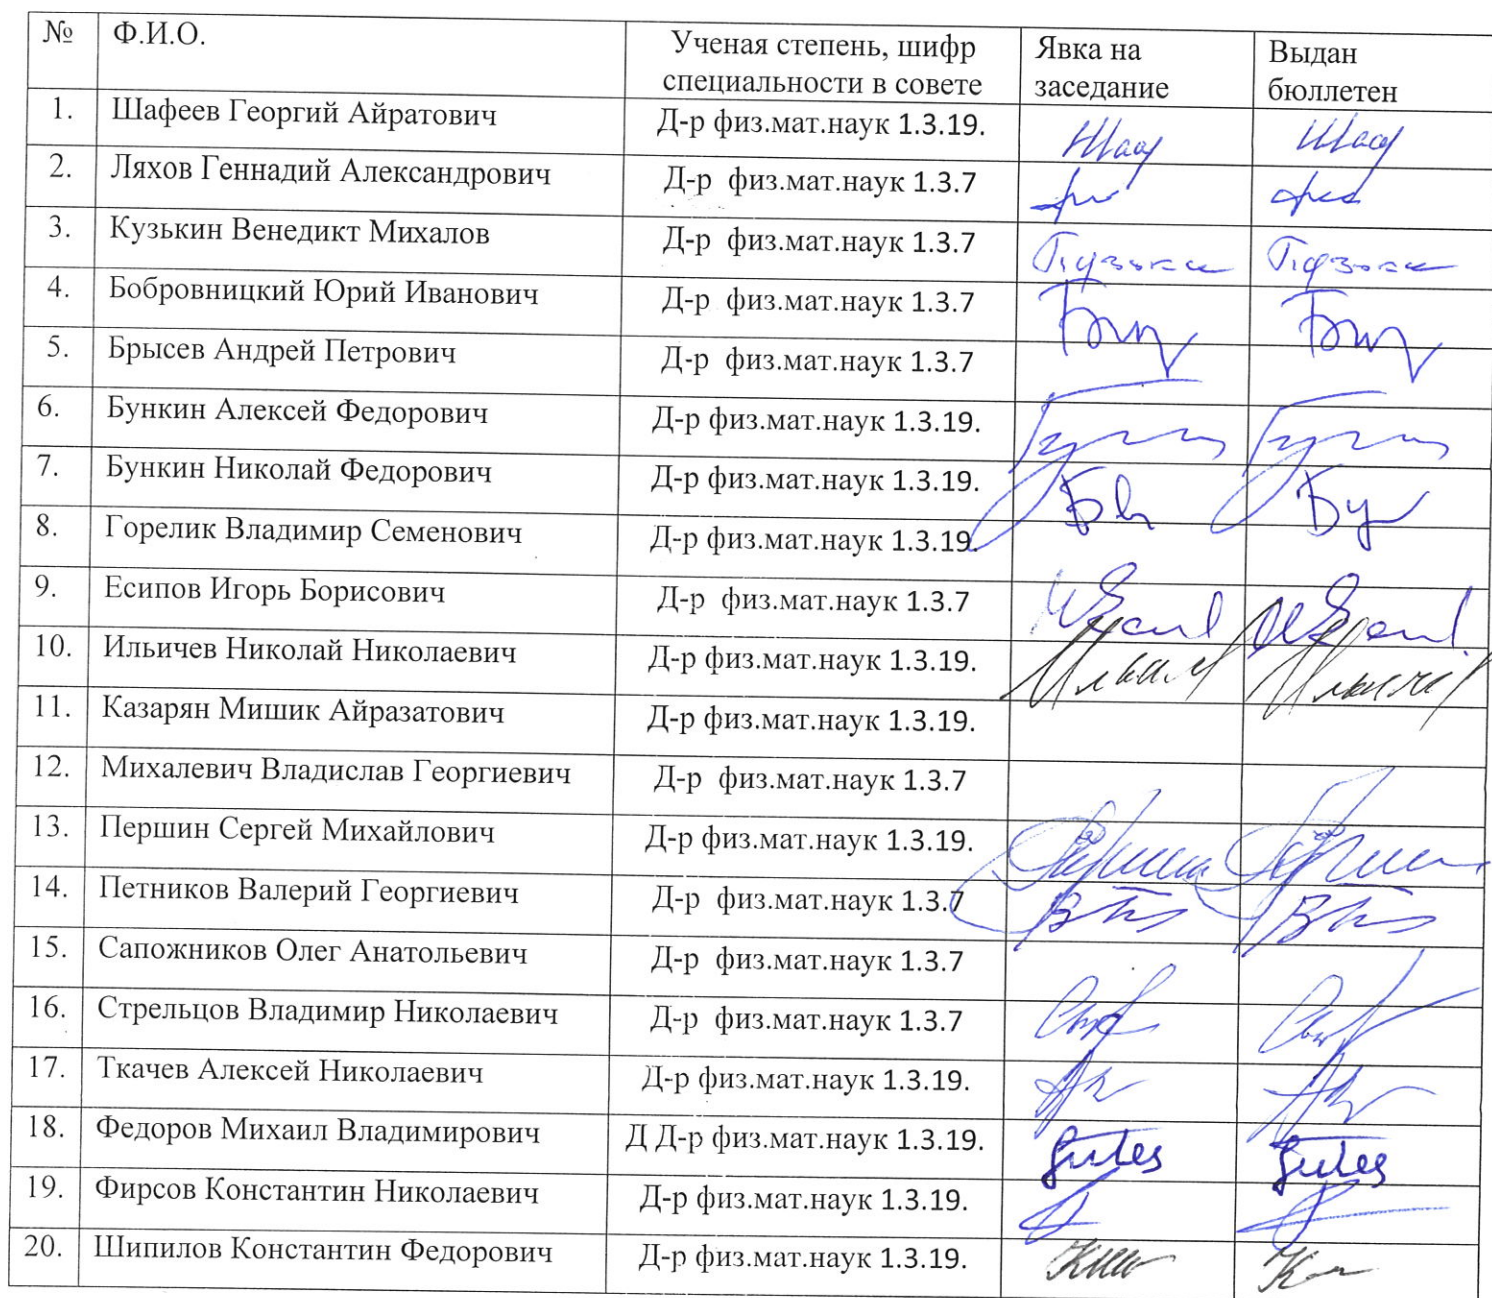 № Ф.И.О. Ученая степень, шифр специальности в совете Явка на заседание Выдан бюллетен
1. Шафеев Георгий Айратович Д-р физ.мат.наук 1.3.19.
2. Ляхов Геннадий Александрович Д-р физ.мат.наук 1.3.7
3. Кузькин Венедикт Михалов Д-р физ.мат.наук 1.3.7
4. Бобровницкий Юрий Иванович Д-р физ.мат.наук 1.3.7
5. Брысев Андрей Петрович Д-р физ.мат.наук 1.3.7
6. Бункин Алексей Федорович Д-р физ.мат.наук 1.3.19.
7. Бункин Николай Федорович Д-р физ.мат.наук 1.3.19.
8. Горелик Владимир Семенович Д-р физ.мат.наук 1.3.19.
9. Есипов Игорь Борисович Д-р физ.мат.наук 1.3.7
10. Ильичев Николай Николаевич Д-р физ.мат.наук 1.3.19.
11. Казарян Мишик Айразатович Д-р физ.мат.наук 1.3.19.
12. Михалевич Владислав Георгиевич Д-р физ.мат.наук 1.3.7
13. Першин Сергей Михайлович Д-р физ.мат.наук 1.3.19.
14. Петников Валерий Георгиевич Д-р физ.мат.наук 1.3.7
15. Сапожников Олег Анатольевич Д-р физ.мат.наук 1.3.7
16. Стрельцов Владимир Николаевич Д-р физ.мат.наук 1.3.7
17. Ткачев Алексей Николаевич Д-р физ.мат.наук 1.3.19.
18. Федоров Михаил Владимирович Д Д-р физ.мат.наук 1.3.19.
19. Фирсов Константин Николаевич Д-р физ.мат.наук 1.3.19.
20. Шипилов Константин Федорович Д-р физ.мат.наук 1.3.19.